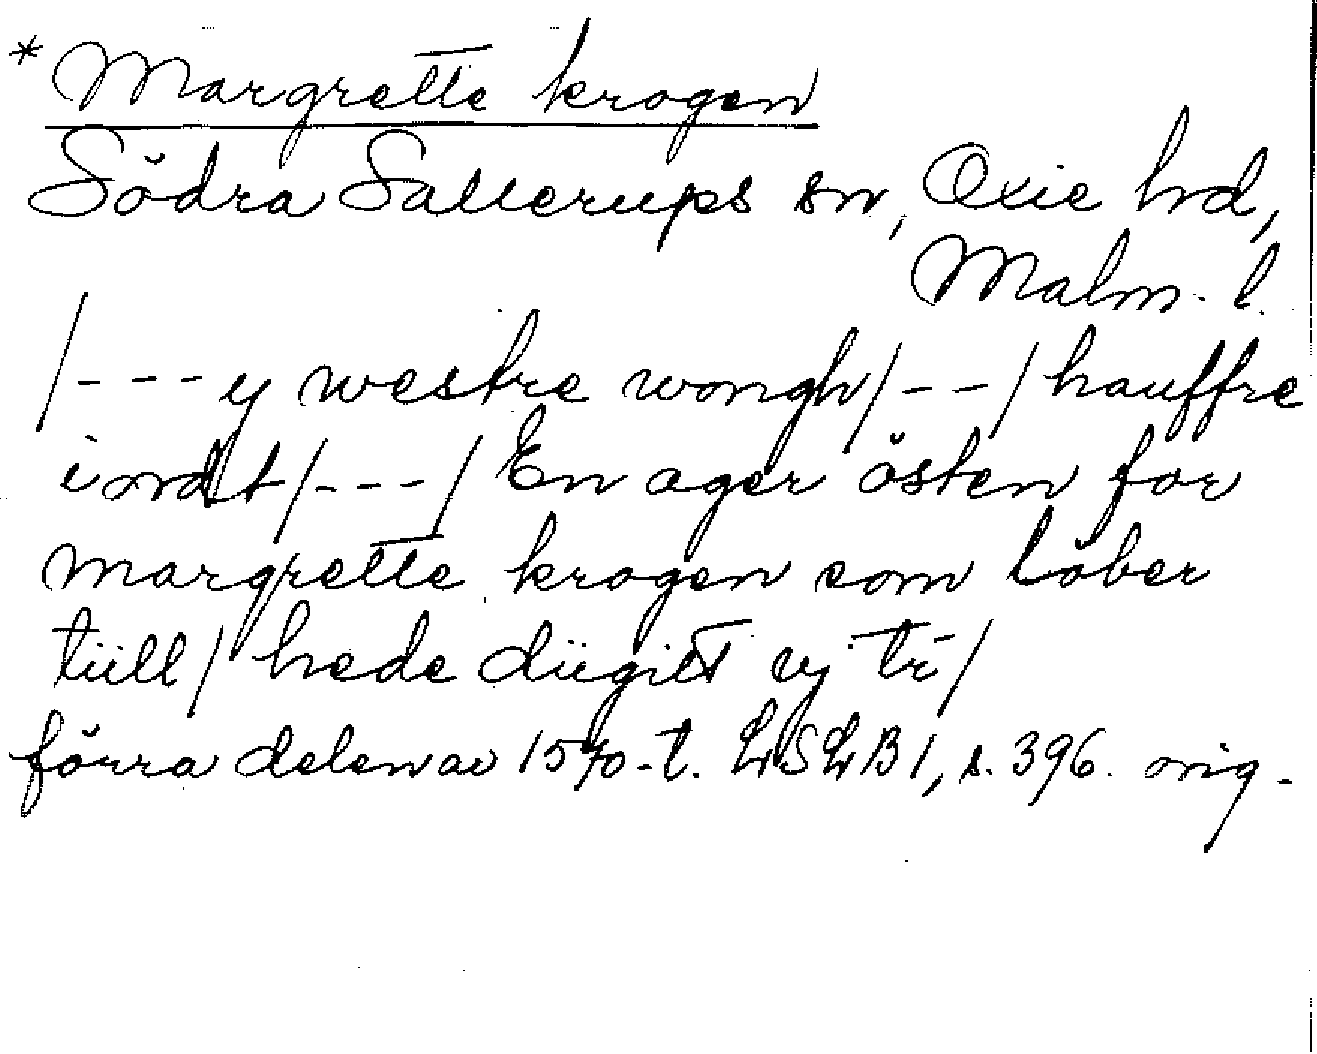 * Margrette krogen
Södra Sallerups sn, Oxie hd,
Malm. l.
/---y westre wongh/--/hauffre
indt/---/ En ager östen for
margrette krogen som löber
tüll/ hede dügitt vj tr/
förra delen av 1570-t. LSLB 1, s. 396. orig.